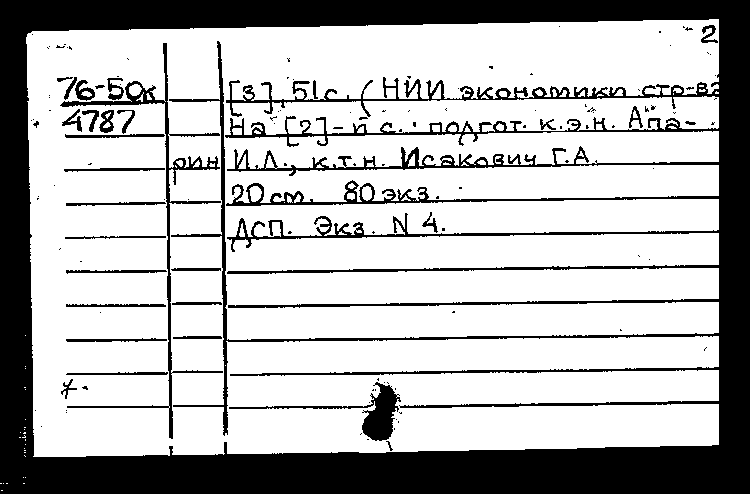 2
76-50к [3], 51 с. (НИИ экономики стр-ва
4787 На [2]-й с.: подгот. к.э.н. Апа-
рин И.Л., к.т.н. Исакович Г.А.
20 см. 80 экз.
ДСП. Экз. N 4.